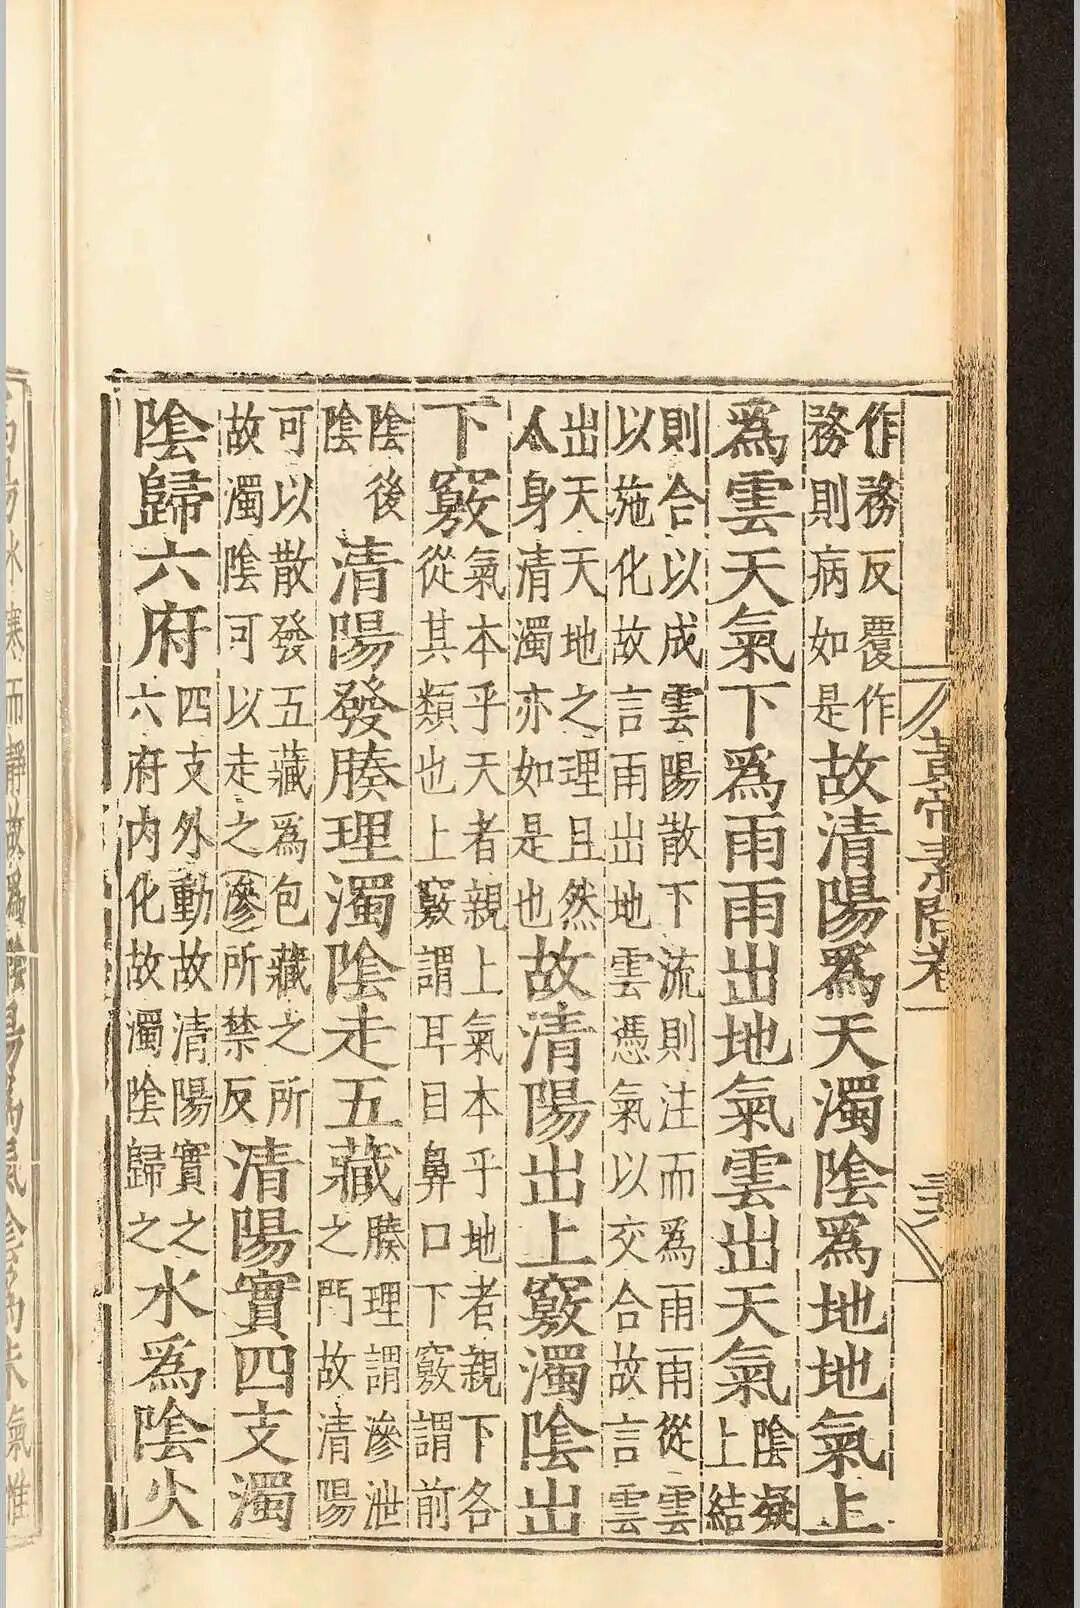 黃帝素問卷
作務反覆作
務則病如是
故清陽爲天濁陰爲地地氣上
爲雲天氣下爲雨雨出地氣雲出天氣
陰凝
上結
則合以成雲陽散下流則注而爲雨雨從雲
以施化故言雨出地雲憑氣以交合故言雲
出天天地之理且然
人身清濁亦如是也
故清陽出上竅濁陰出
下竅
氣本乎天者親上氣本乎地者親下各
從其類也上竅謂耳目鼻口下竅謂前
陰後
陰
清陽發腠理濁陰走五藏
腠理謂滲泄
之門故清陽
可以散發五藏爲包藏之所
故濁陰可以走之滲所禁反
清陽實四支濁
陰歸六府
四支外動故清陽實之
六府内化故濁陰歸之
水爲陰火